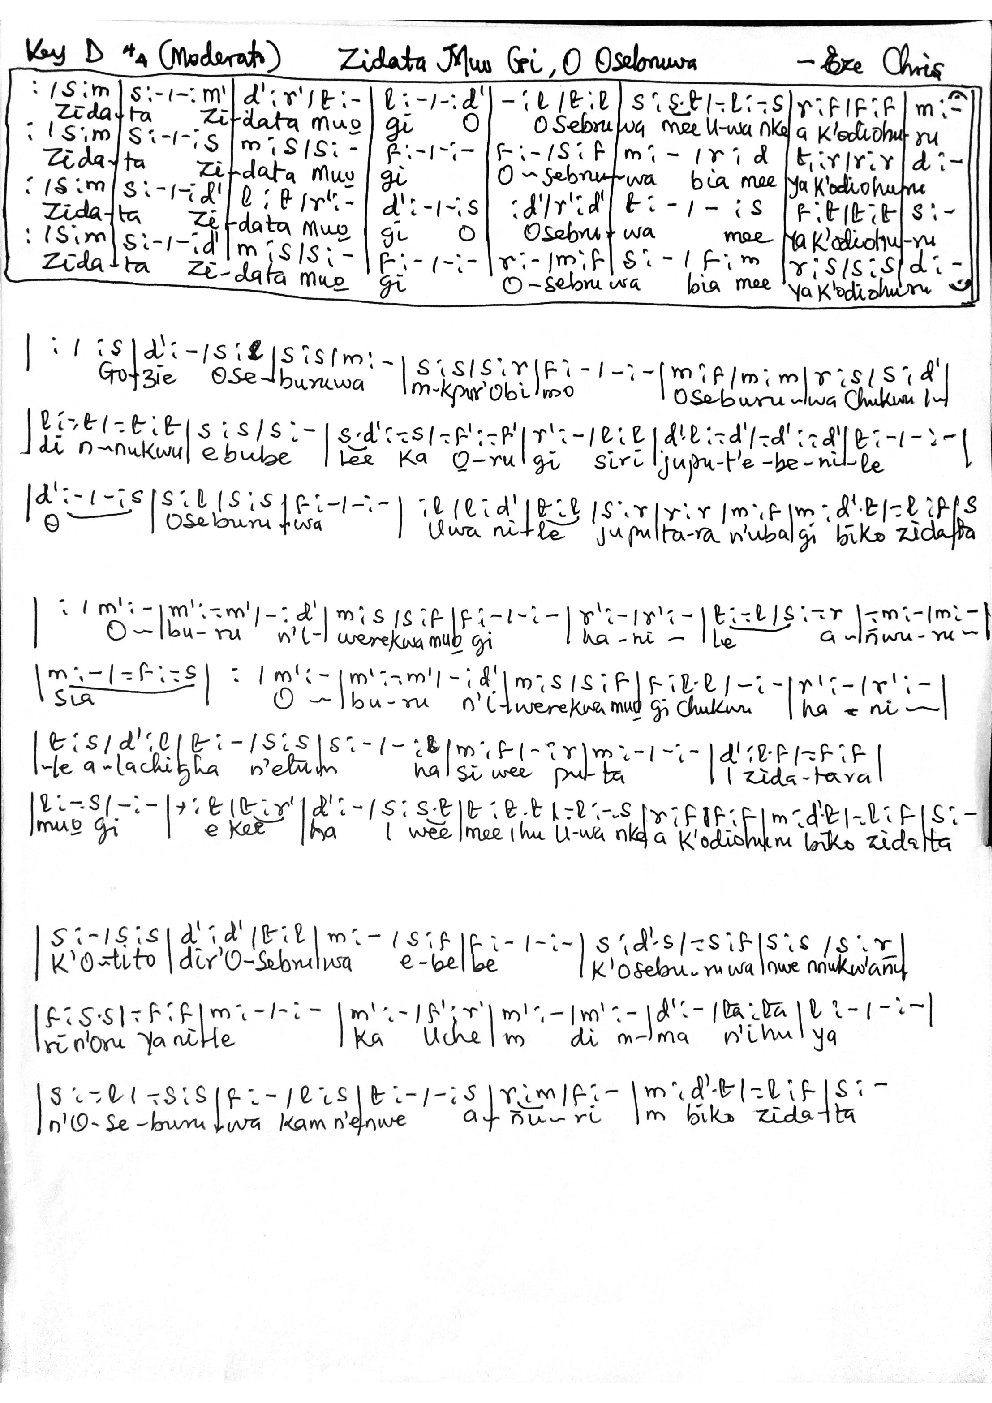 Key D 4/4 (Moderato) Zidata Muo Gi, O Osebruwa - Eze Chris
: / s : m | s : - / - : m' | d' : r' / t : - | l : - / - : d' | - : l / t : l | s : s.t / - : l : - : s | r : f / f : f | m : -
Zida-ta Zi-data muọ gi O Osebru-wa mee U-wa nke a K'odiohu-ru
: / s : m | s : - / - : s | m : s / s : - | f : - / - : - | f : - / s : f | m : - / r : d | t : r / r : r | d : -
Zida-ta Zi-data muọ gi O-sebru-wa bia mee ya K'odiohuru
: / s : m | s : - / - : d' | l : t / r' : - | d' : - / - : s | : d' / r' : d' | t : - / - : s | f : t / t : t | s : -
Zida-ta Zi-data muọ gi O Osebru-wa mee ya K'odiohu-ru
: / s : m | s : - / - : d' | m : s / s : - | f : - / - : - | r : - / m : f | s : - / f : m | r : s / s : s | d : -
Zida-ta Zi-data muọ gi O-sebruwa bia mee ya K'odiohuru
| : / : s | d' : - / s : l | s : s / m : - | s : s / s : r | f : - / - : - | m : f / m : m | r : s / s : d' |
Go-zie Ose-buruwa m-kpur'Obi mo Oseburu-wa Chukwu I-
| l : - t / - t : t | s : s / s : - | s.d' : - s / - f' : - f' | r' : - / l : l | d' l : - d' / - d' : - d' | t : - / - : - |
di n-nukwu ebube lee Ka O-ru gi siri jupu-t'e-be-ni-le
| d' : - / - : s | s : l / s : s | f : - / - : - | : l / l : d' | t : l / s : r | r : r / m : f | m : d'.t / - l : f | s
O Oseburu-wa Uwa ni-le jupu-ta-ra n'uba gi biko zida-ta
| : / m' : - | m' : - m' / - : d' | m : s / s : f | f : - / - : - | r' : - / r' : - | t : - l / s : - r | - m : - / m : - |
O- bu-ru n'i-werekwa muọ gi ha-ni- le a-ñwu-ru-
| m : - / - f : - s | : / m' : - | m' : - m' / - : d' | m : s / s : f | f : l.l / - : - | r' : - / r' : - |
sia O- bu-ru n'i-werekwa muọ gi Chukwu ha-ni-
| t : s / d' : l | t : - / s : s | s : - / - : l | m : f / - : r | m : - / - : - | d' : l.f / - f : f |
-le a-lachigha n'etum ha si wee pu-ta I zida-tara
| l : - s / - : - | : t / t : r' | d' : - / s : s.t | t : t.t / - l : - s | r : f / f : f | m : d'.t / - l : f | s : -
muọ gi e kee ha I wee mee ihu U-wa nke a K'odiohuru biko zida-ta
| s : - / s : s | d' : d' / t : l | m : - / s : f | f : - / - : - | s : d'.s / - s : f | s : s / s : r |
K'O-tito dir'O-Sebru-wa e-be-be K'Osebu-ruwa nwe nnukw'añu
| f : s.s / - f : f | m : - / - : - | m' : - / f' : r' | m' : - / m' : - | d' : - / ta : ta | l : - / - : - |
ri n'onu ya ni-le ka Uche m di m-ma n'ihu ya
| s : - l / - s : s | f : - / l : s | t : - / - : s | r : m / f : - | m : d'.t / - l : f | s : -
n'O-se-buru-wa kam n'e-nwe a-ñu-ri m biko zida-ta